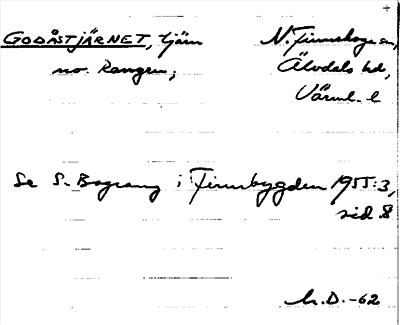 +
GODÅSTJÄRNET, tjärn
no. Rangen;
N. Finnskoga sn,
Älvdals hd,
Värml. l
Se S. Bograng i Finnbygden 1955:3,
sid 8
h.D.-62